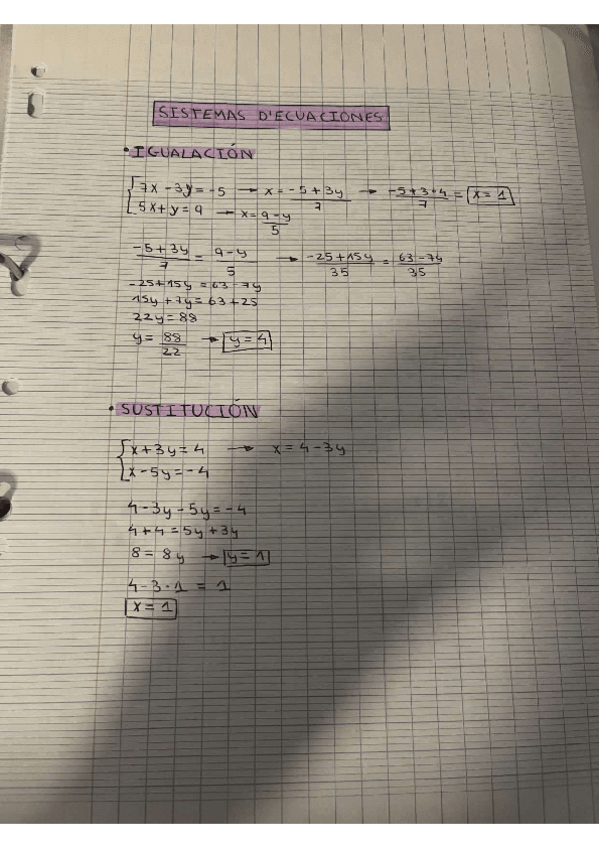 SISTEMAS D'ECUACIONES
• IGUALACIÓN
{ 7x - 3y = -5 → x = (-5 + 3y)/7 → (-5 + 3·4)/7 = x = 1
5x + y = 9 → x = (9 - y)/5
(-5 + 3y)/7 = (9 - y)/5 → (-25 + 15y)/35 = (63 - 7y)/35
-25 + 15y = 63 - 7y
15y + 7y = 63 + 25
22y = 88
y = 88/22 → y = 4
• SUSTITUCIÓN
{ x + 3y = 4 → x = 4 - 3y
x - 5y = -4
4 - 3y - 5y = -4
4 + 4 = 5y + 3y
8 = 8y → y = 1
4 - 3 · 1 = 1
x = 1